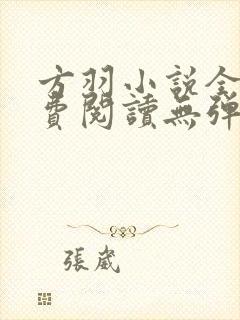 方羽小説全
費閱讀無彈
張嵗